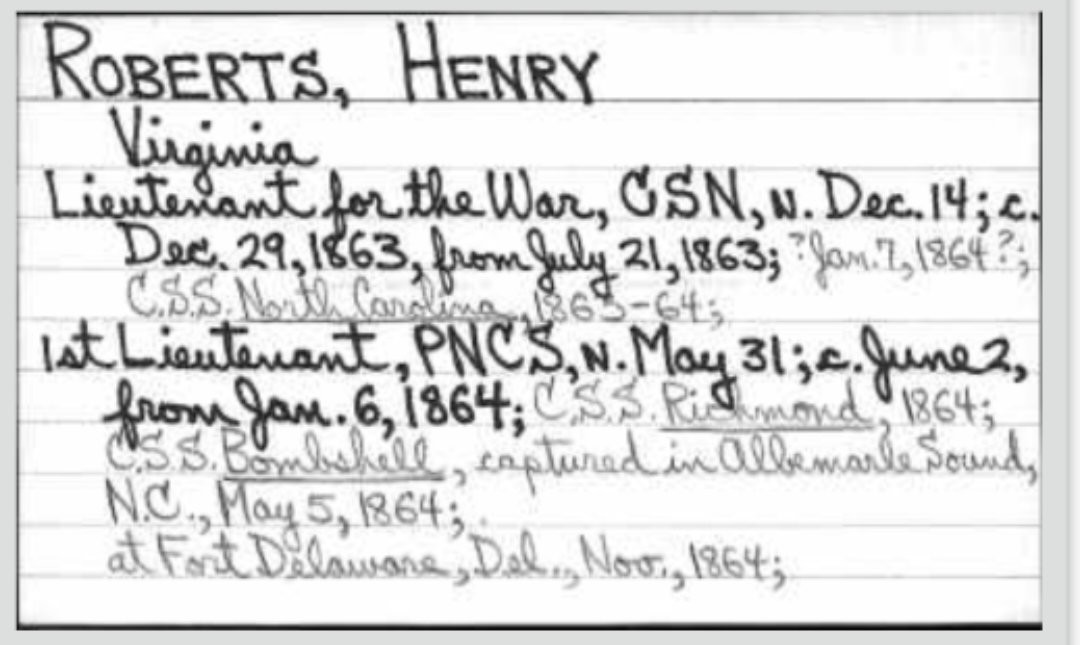 ROBERTS, HENRY
Virginia
Lieutenant for the War, CSN, N. Dec. 14; c.
Dec. 29, 1863, from July 21, 1863; ?Jan. 7, 1864?;
C.S.S. North Carolina, 1863-64;
1st Lieutenant, PNCS, N. May 31; c. June 2,
from Jan. 6, 1864; C.S.S. Richmond, 1864;
C.S.S. Bombshell, captured in Albemarle Sound,
N.C., May 5, 1864;
at Fort Delaware, Del., Nov., 1864;